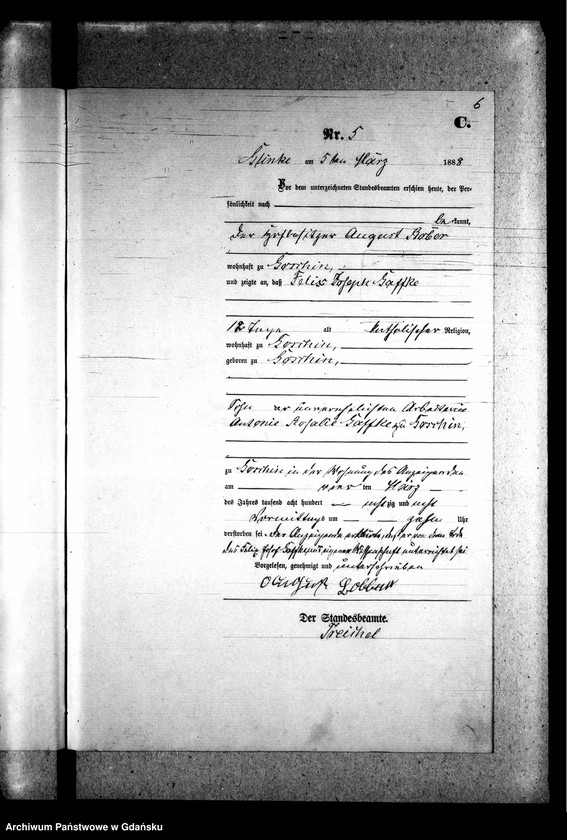 6
C.
Nr. 5
am 5ten März 1888
Vor dem unterzeichneten Standesbeamten erschien heute, der Per-
sönlichkeit nach
be kannt,
der August
wohnhaft zu Gorrhin,
und zeigte an, daß Felix Joseph Gaffke
alt katholischer Religion,
wohnhaft zu Gorrhin,
geboren zu Gorrhin,
Sohn der unverehelichten Arbeiterin
Antonie Rosalie Gaffke zu Gorrhin,
zu Gorrhin in der Wohnung des Anzeigenden
am vier ten März
des Jahres tausend acht hundert acht zig und acht
Vormittags um zehn Uhr
verstorben sei. Der Anzeigende erklärte, daß er von dem Tode
des Felix Josef Gaffke aus eigener Wissenschaft unterrichtet sei
Vorgelesen, genehmigt und unterschrieben
August
Der Standesbeamte.
Treichel
Archiwum Państwowe w Gdańsku